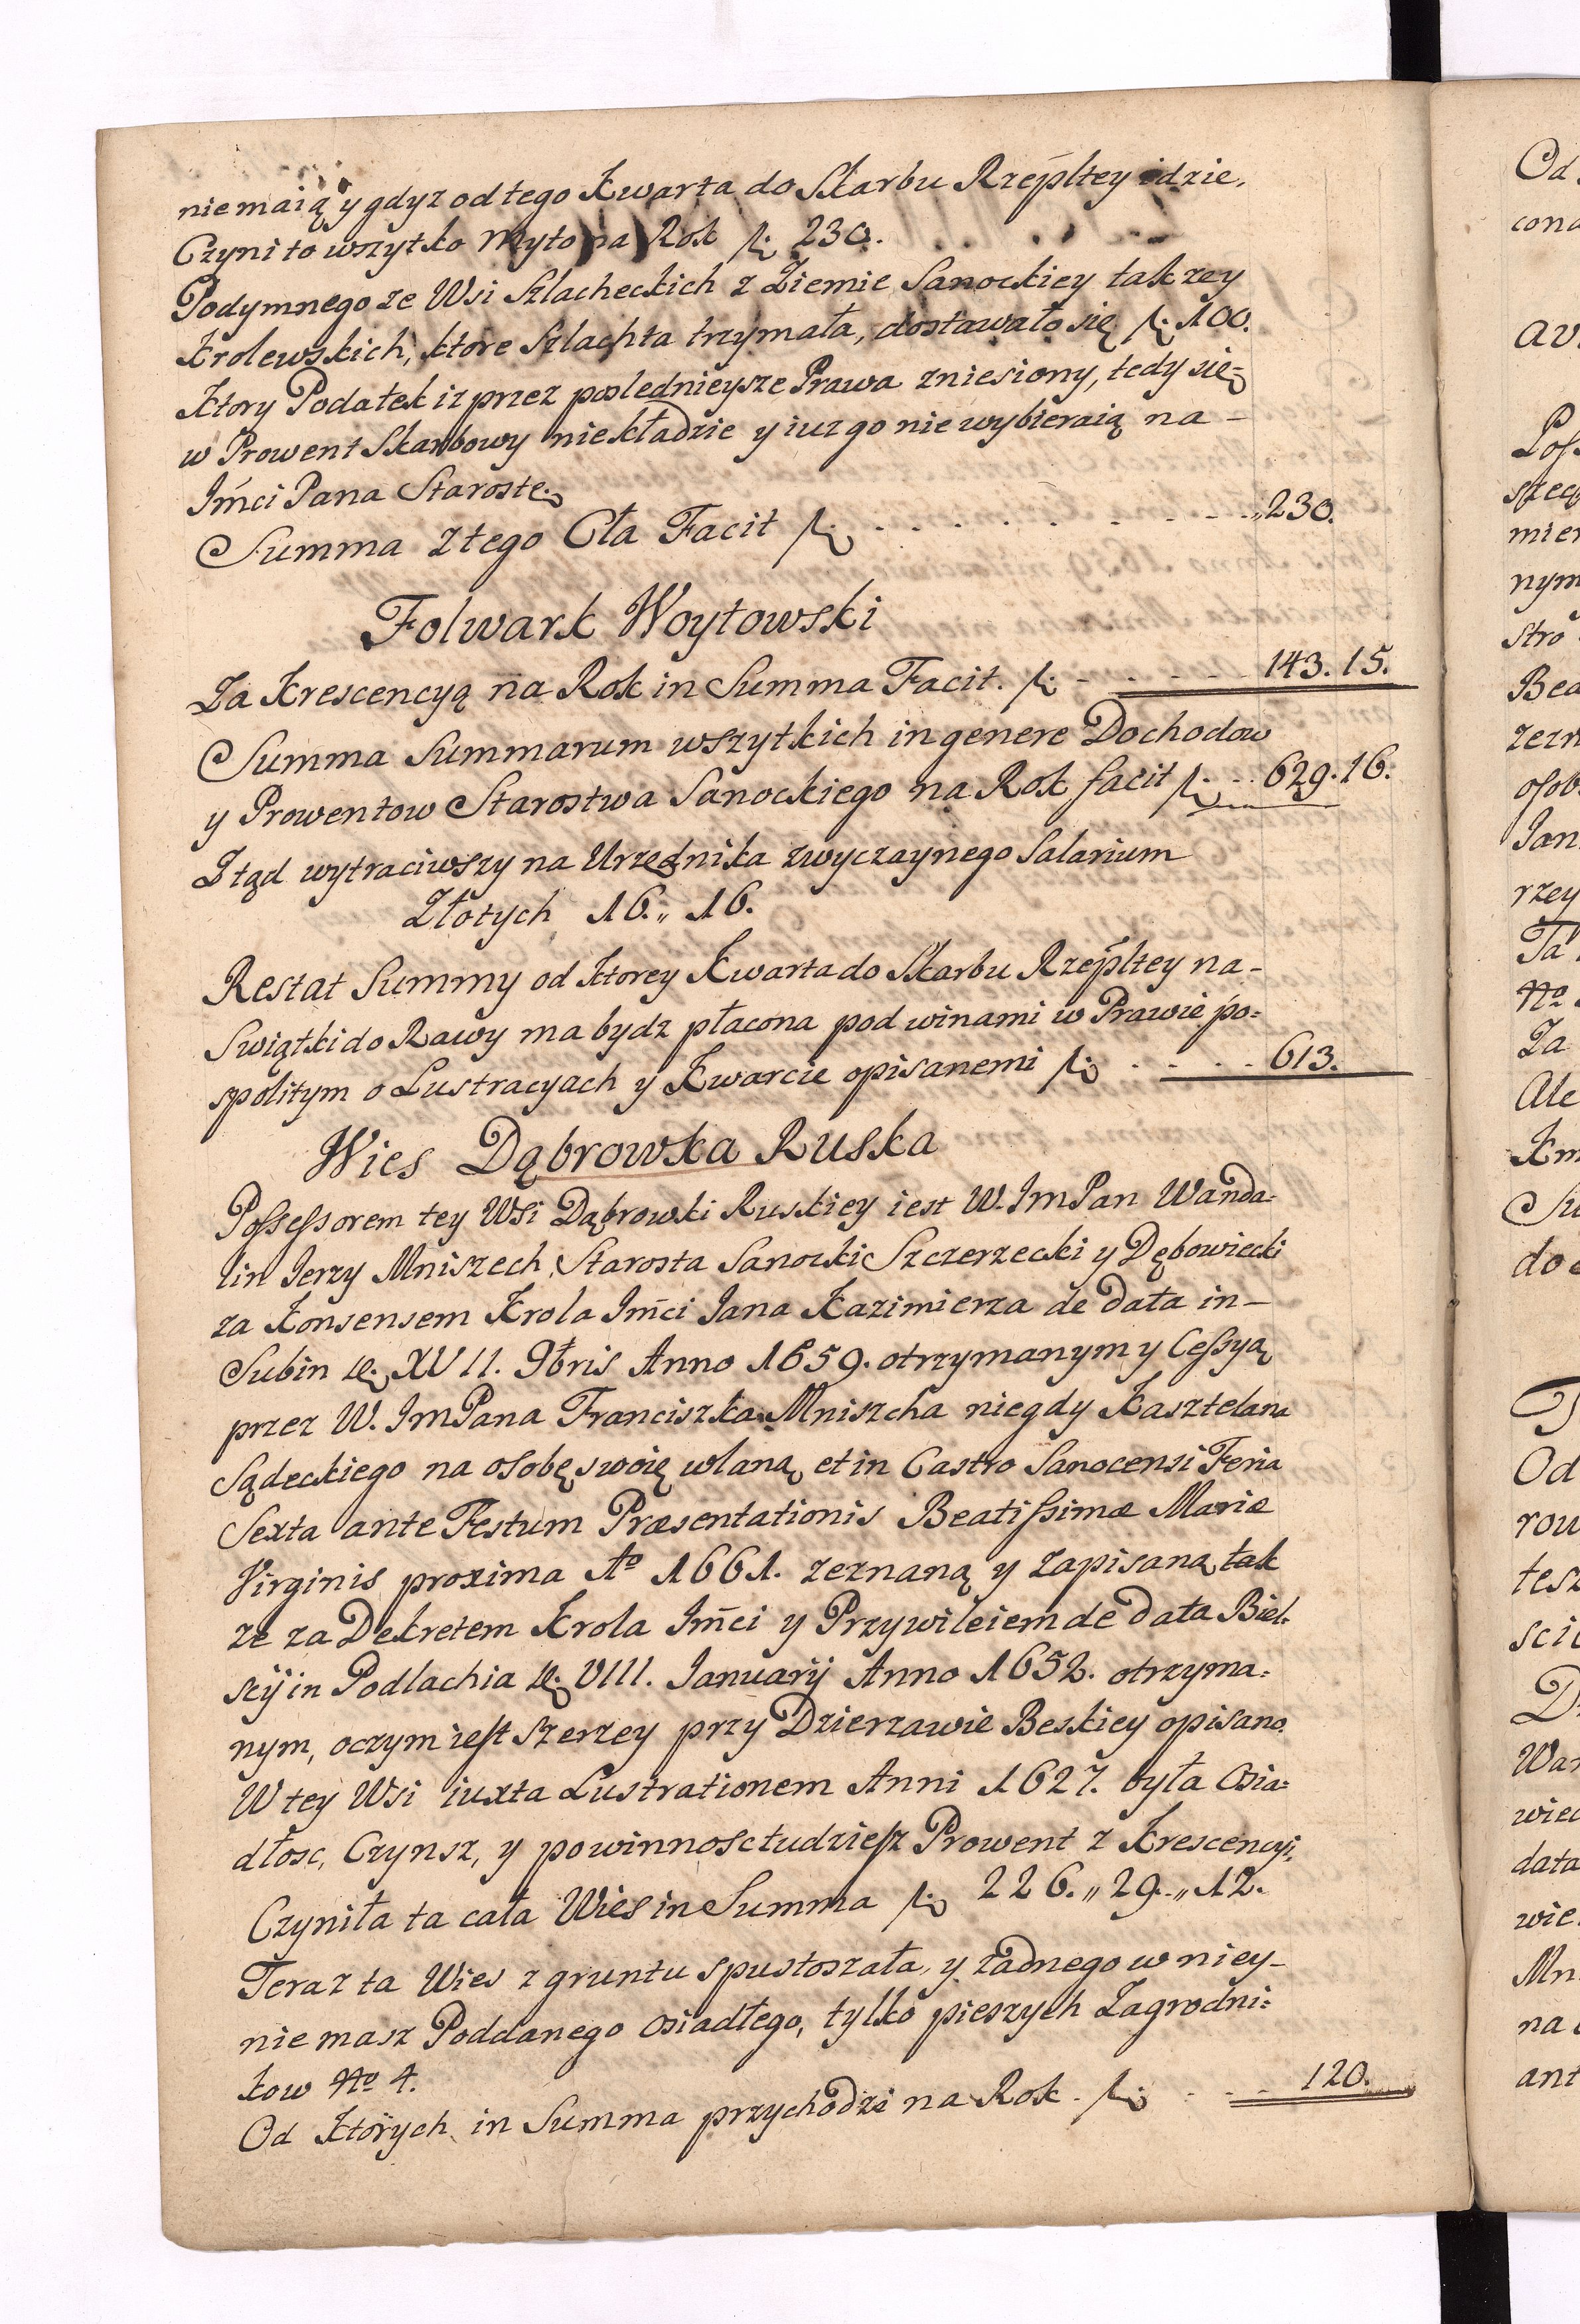 niemaią y gdyz od tego Kwarta do Skarbu Rzeṕltey idzie.
Czyni to wszytko Myto na Rok fl: 230.
Podymnego ze Wsi Szlacheckich z Ziemie Sanockiey takzey
Krolewskich, ktore Szlachta trzymała, dostawało się fl: 100.
Ktory Podatek iz przez poslednieysze Prawa zniesiony, tedy się
w Prowent Skarbowy niekładzie y iuz go nie wybieraią na-
Jḿci Pana Starostę.
Summa z tego Cła Facit fl: - - - - - - - - - „230.
Folwark Woytowski
Za Krescencyą na Rok in Summa Facit. fl: - - - - - 143.15.
Summa Summarum wszytkich in genere Dochodow
y Prowentow Starostwa Sanockiego na Rok facit fl: - - 629.16.
Ztąd wytraciwszy na Urzędnika zwyczaynego Salarium
Złotych 16.„ 16.
Restat Summy od Ktorey Kwarta do Skarbu Rzeṕltey na-
Swiątki do Rawy ma bydz płacona pod winami w Prawie po=
spolitym o Lustracyach y Kwarcie opisanemi fl: - - - - 613.
Wies Dąbrowka Ruska
Possessorem tey Wsi Dąbrowki Ruskiey iest W. ImPan Wanda=
lin Jerzy Mniszech, Starosta Sanocki Szczerzecki y Dębowiecki
za Konsensem Krola Jm̄ci Jana Kazimierza de data in-
Subin d. XVII. 9bris Anno 1659. otrzymanym y Cessyą
przez W. ImPana Franciszka Mniszcha niegdy Kasztelana
Sądeckiego na osobę swoię wlaną, et in Castro Sanocensi Feria
Sexta ante Festum Præsentationis Beatissimæ Mariæ
Virginis proxima Aº 1661. zeznaną y zapisaną, tak
ze za Dekretem Krola Jm̄ci y Przywileiem de data Biel=
scij in Podlachia d. VIII. Januarij Anno 1652. otrzyma=
nym, oczym iest szerzey przy Dzierzawie Beskiey opisano.
W tey Wsi iuxta Lustrationem Anni 1627. była Osia=
dłosc, Czynsz, y powinnosc tudziesz Prowent z Krescencyi.
Czyniła ta cała Wies in Summa fl: 226.„29.„12.
Teraz ta Wies z gruntu spustoszała, y zadnego w niey-
nie masz Poddanego osiadłego, tylko pieszych Zagrodni=
kow Nº 4.
Od Ktorych in Summa przychodzi na Rok. fl: - - - 120.